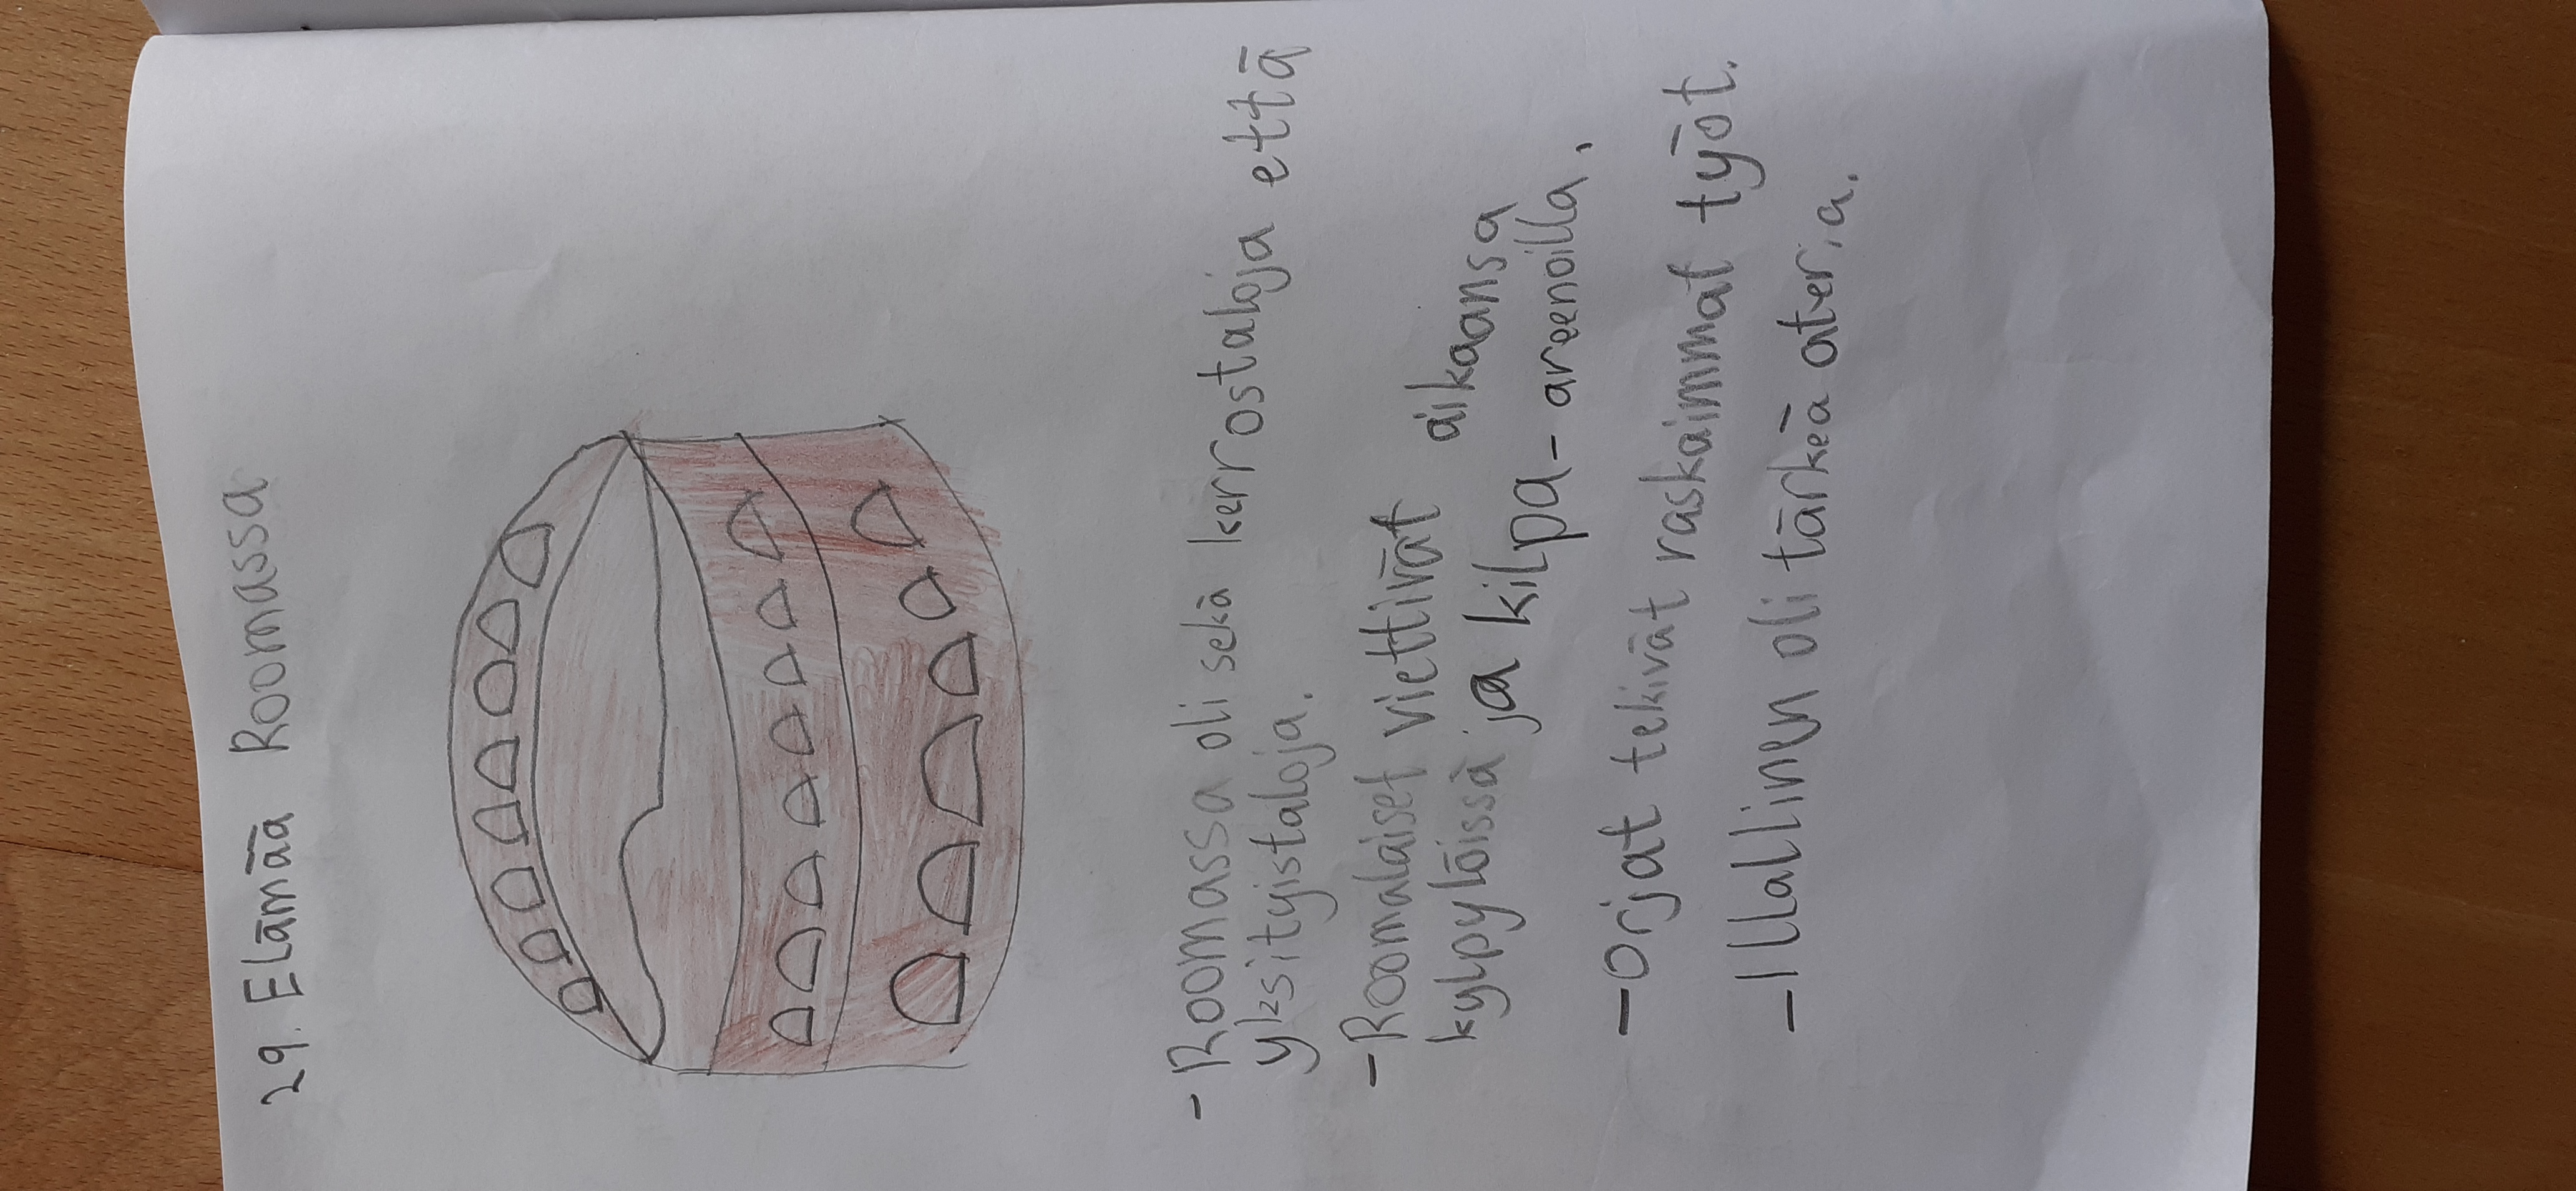 29. Elämää Roomassa
- Roomassa oli sekä kerrostaloja että
yksityistaloja.
- Roomalaiset viettivät aikaansa
kylpylöissä ja kilpa-areenoilla.
- Orjat tekivät raskaimmat työt.
- Illallinen oli tärkeä ateria.